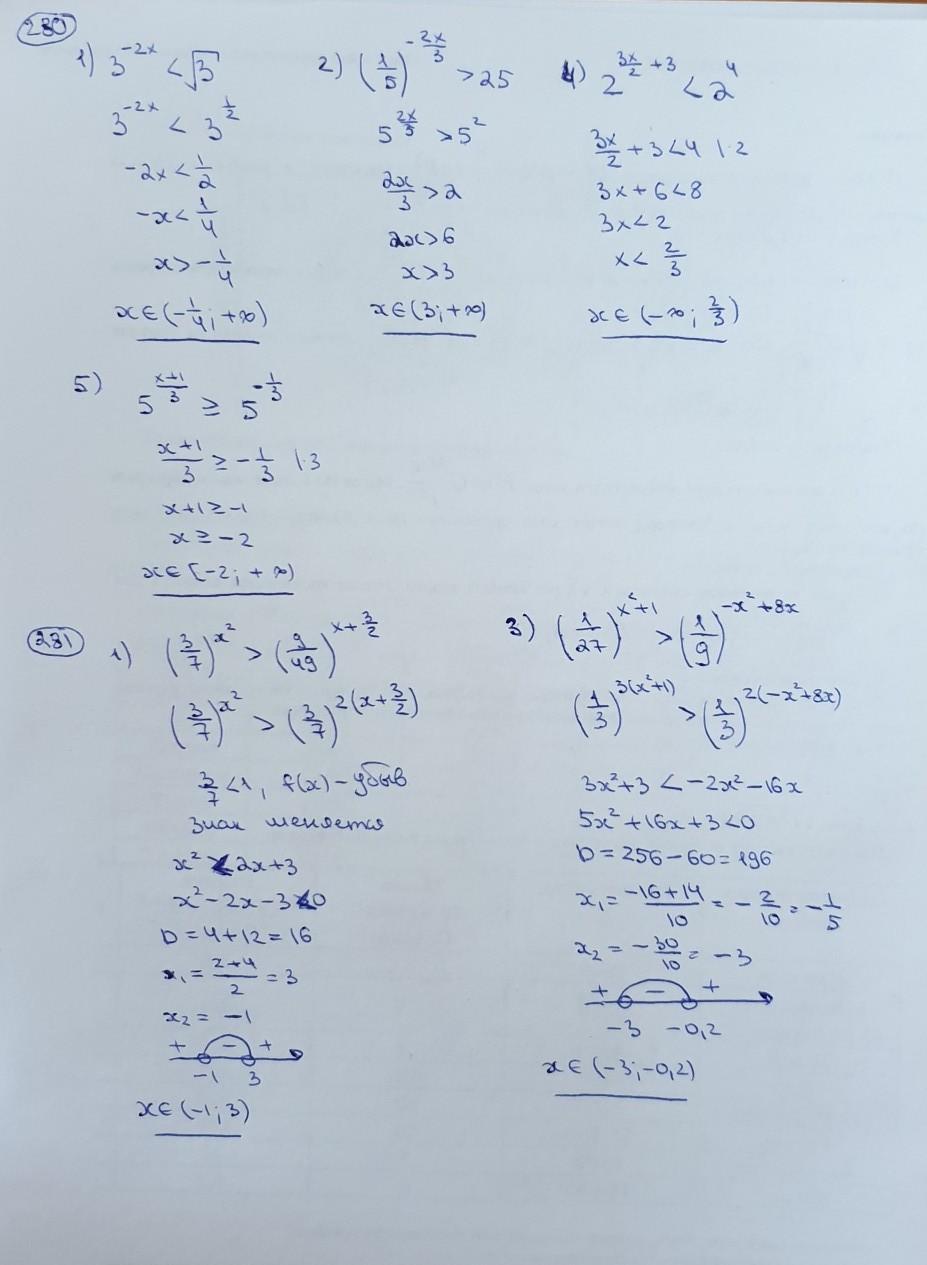 230
1) 3^{-2x} < √3
3^{-2x} < 3^{1/2}
-2x < 1/2
-x < 1/4
x > -1/4
x ∈ (-1/4; +∞)
2) (1/5)^{-2x/3} > 25
5^{2x/3} > 5^2
2x/3 > 2
2x > 6
x > 3
x ∈ (3; +∞)
4) 2^{3x/2 + 3} < 2^4
3x/2 + 3 < 4 | · 2
3x + 6 < 8
3x < 2
x < 2/3
x ∈ (-∞; 2/3)
5) 5^{(x+1)/3} ≥ 5^{-1/3}
(x+1)/3 ≥ -1/3 | · 3
x+1 ≥ -1
x ≥ -2
x ∈ [-2; +∞)
231
1) (3/7)^{x^2} > (9/49)^{x + 3/2}
(3/7)^{x^2} > (3/7)^{2(x + 3/2)}
3/7 < 1, f(x) - убыв
знак меняется
x^2 < 2x+3
x^2 - 2x - 3 < 0
D = 4 + 12 = 16
x₁ = (2+4)/2 = 3
x₂ = -1
+ - +
-1 3
x ∈ (-1; 3)
3) (1/27)^{x^2+1} > (1/9)^{-x^2+8x}
(1/3)^{3(x^2+1)} > (1/3)^{2(-x^2+8x)}
3x^2+3 < -2x^2-16x
5x^2+16x+3<0
D = 256 - 60 = 196
x₁ = (-16+14)/10 = -2/10 = -1/5
x₂ = -30/10 = -3
+ - +
-3 -0,2
x ∈ (-3; -0,2)